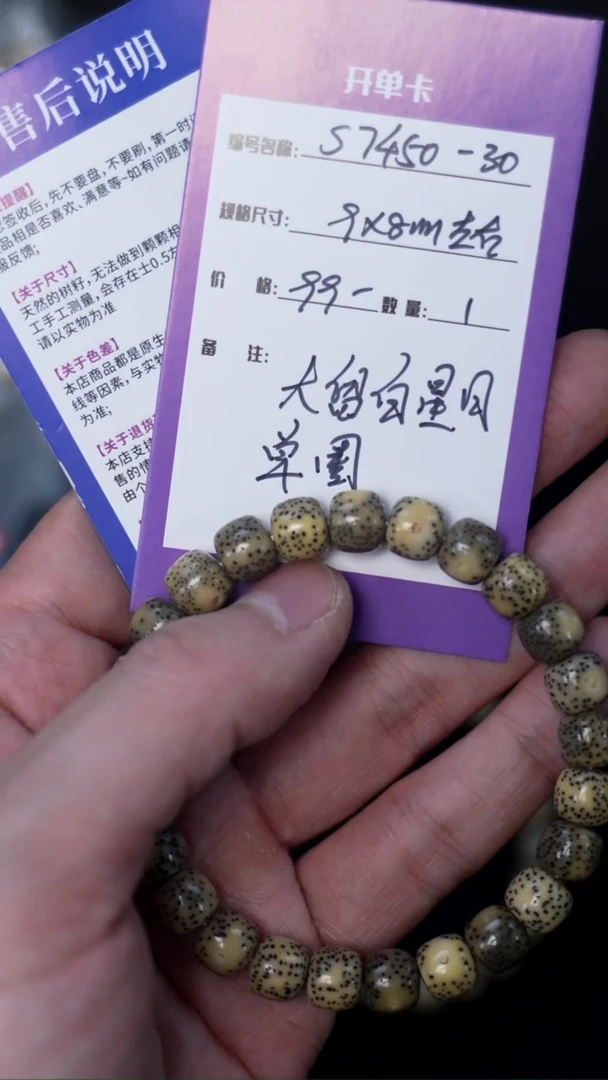 售后说明
提醒】
签收后,先不要盘,不要刷,第一时
品相是否喜欢、满意等-如有问题请
反馈;
【关于尺寸】
天然的树籽,无法做到颗颗相
工手工测量,会存在±0.5左
请以实物为准
【关于色差】
本店商品都是原生
线等因素,与实物
为准;
【关于退货
本店支持
售的情
由个
开单卡
编号名称: S7450-30
规格尺寸: 9x8m左右
价 格: 99- 数量: 1
备 注:
大留白星月
单圈